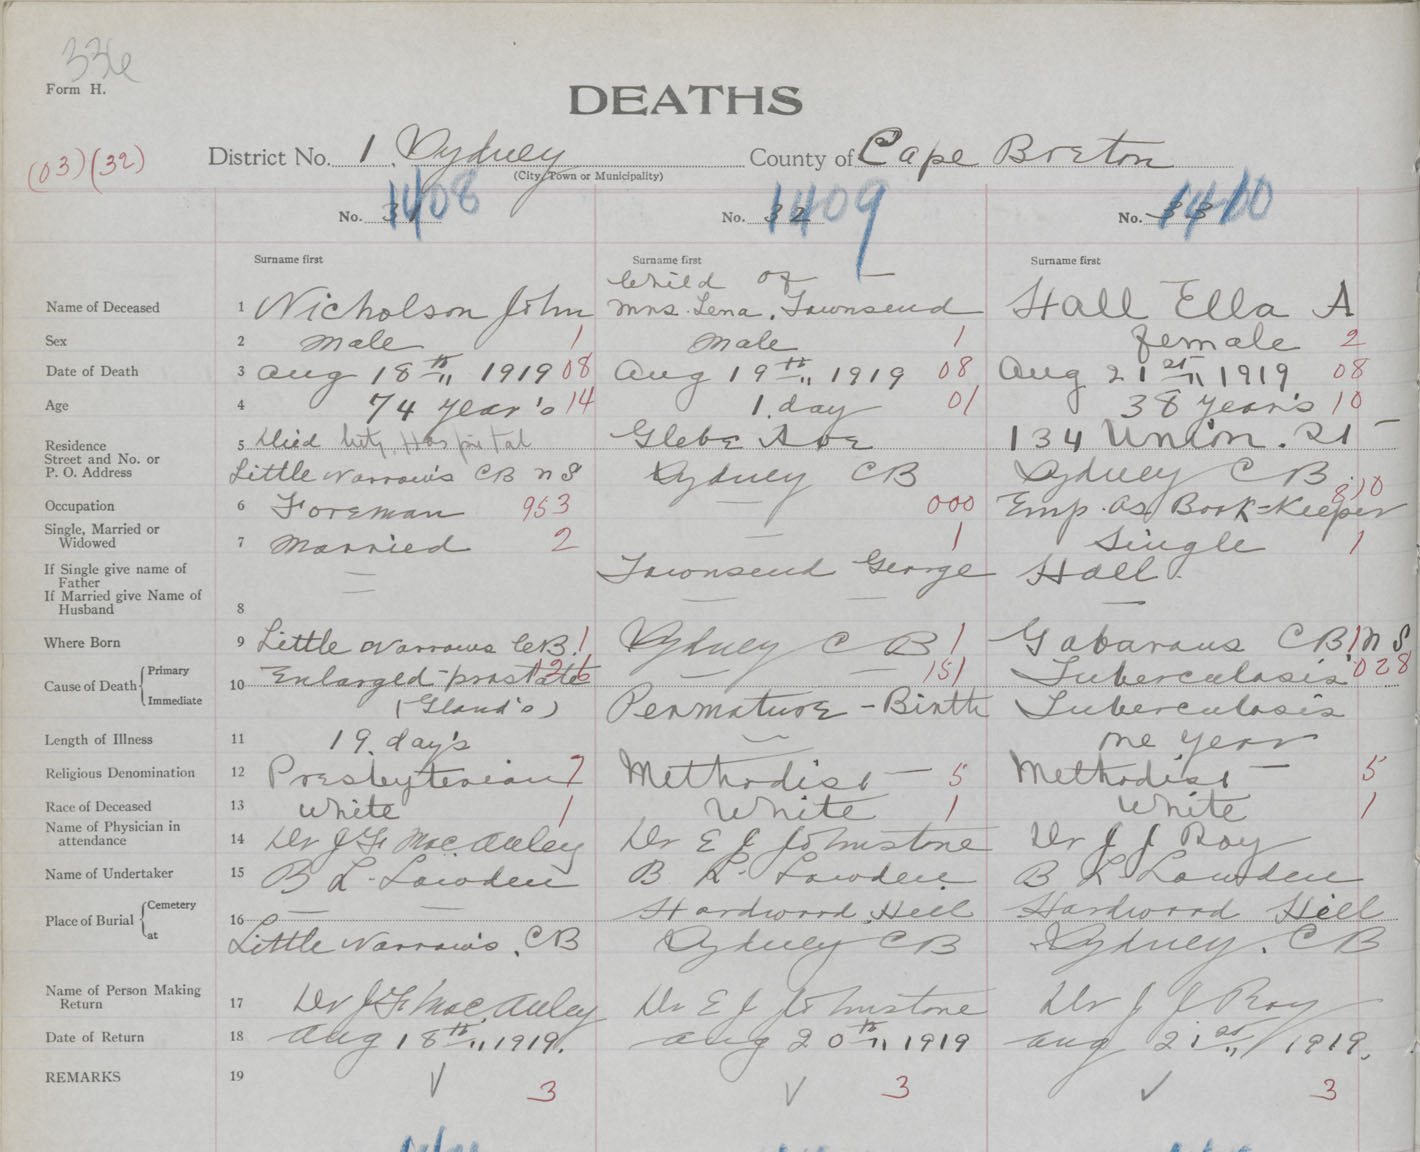 336
Form H.
DEATHS
(03) (32)
District No. 1. Sydney County of Cape Breton
(City, Town or Municipality)
1408 1409 1410
No. 31 No. 32 No. 33
Surname first Surname first Surname first
Child of
Name of Deceased 1 Nicholson John Mrs. Lena. Townsend Hall Ella A
Sex 2 male 1 male 1 female 2
Date of Death 3 Aug 18th 1919 08 Aug 19th 1919 08 Aug 21st 1919 08
Age 4 74 year's 14 1 day 01 38 year's 10
Residence 5 Died City Hospital Glebe Ave 134 Union. St
Street and No. or
P. O. Address Little Narrow's CB NS Sydney CB Sydney CB
Occupation 6 Foreman 953 — 000 Emp. as Book-Keeper 810
Single, Married or
Widowed 7 Married 2 — 1 Single 1
If Single give name of
Father — Townsend George Hall.
If Married give Name of
Husband 8 — — — —
Where Born 9 Little Narrows CB. 1 Sydney CB 1 Gabarous CB 1 NS
Cause of Death Primary 10 Enlarged-prostate 126 — — 151 Tuberculosis 028
Immediate (Gland's) Permature-Birth Tuberculosis
Length of Illness 11 19. day's — one year
Religious Denomination 12 Presbyterian 7 Methodist — 5 Methodist — 5
Race of Deceased 13 White 1 White 1 White 1
Name of Physician in
attendance 14 Dr J F MacAuley Dr E J Johnstone Dr J J Roy
Name of Undertaker 15 B L. Lowden B L. Lowden. B L Lowden
Place of Burial Cemetery 16 — — Hardwood Hill Hardwood Hill
at Little Narrow's. CB Sydney CB Sydney. CB
Name of Person Making
Return 17 Dr J F MacAuley Dr E J Johnstone Dr J J Roy
Date of Return 18 Aug 18th 1919. Aug 20th 1919 Aug 21st 1919.
REMARKS 19 √ 3 √ 3 √ 3